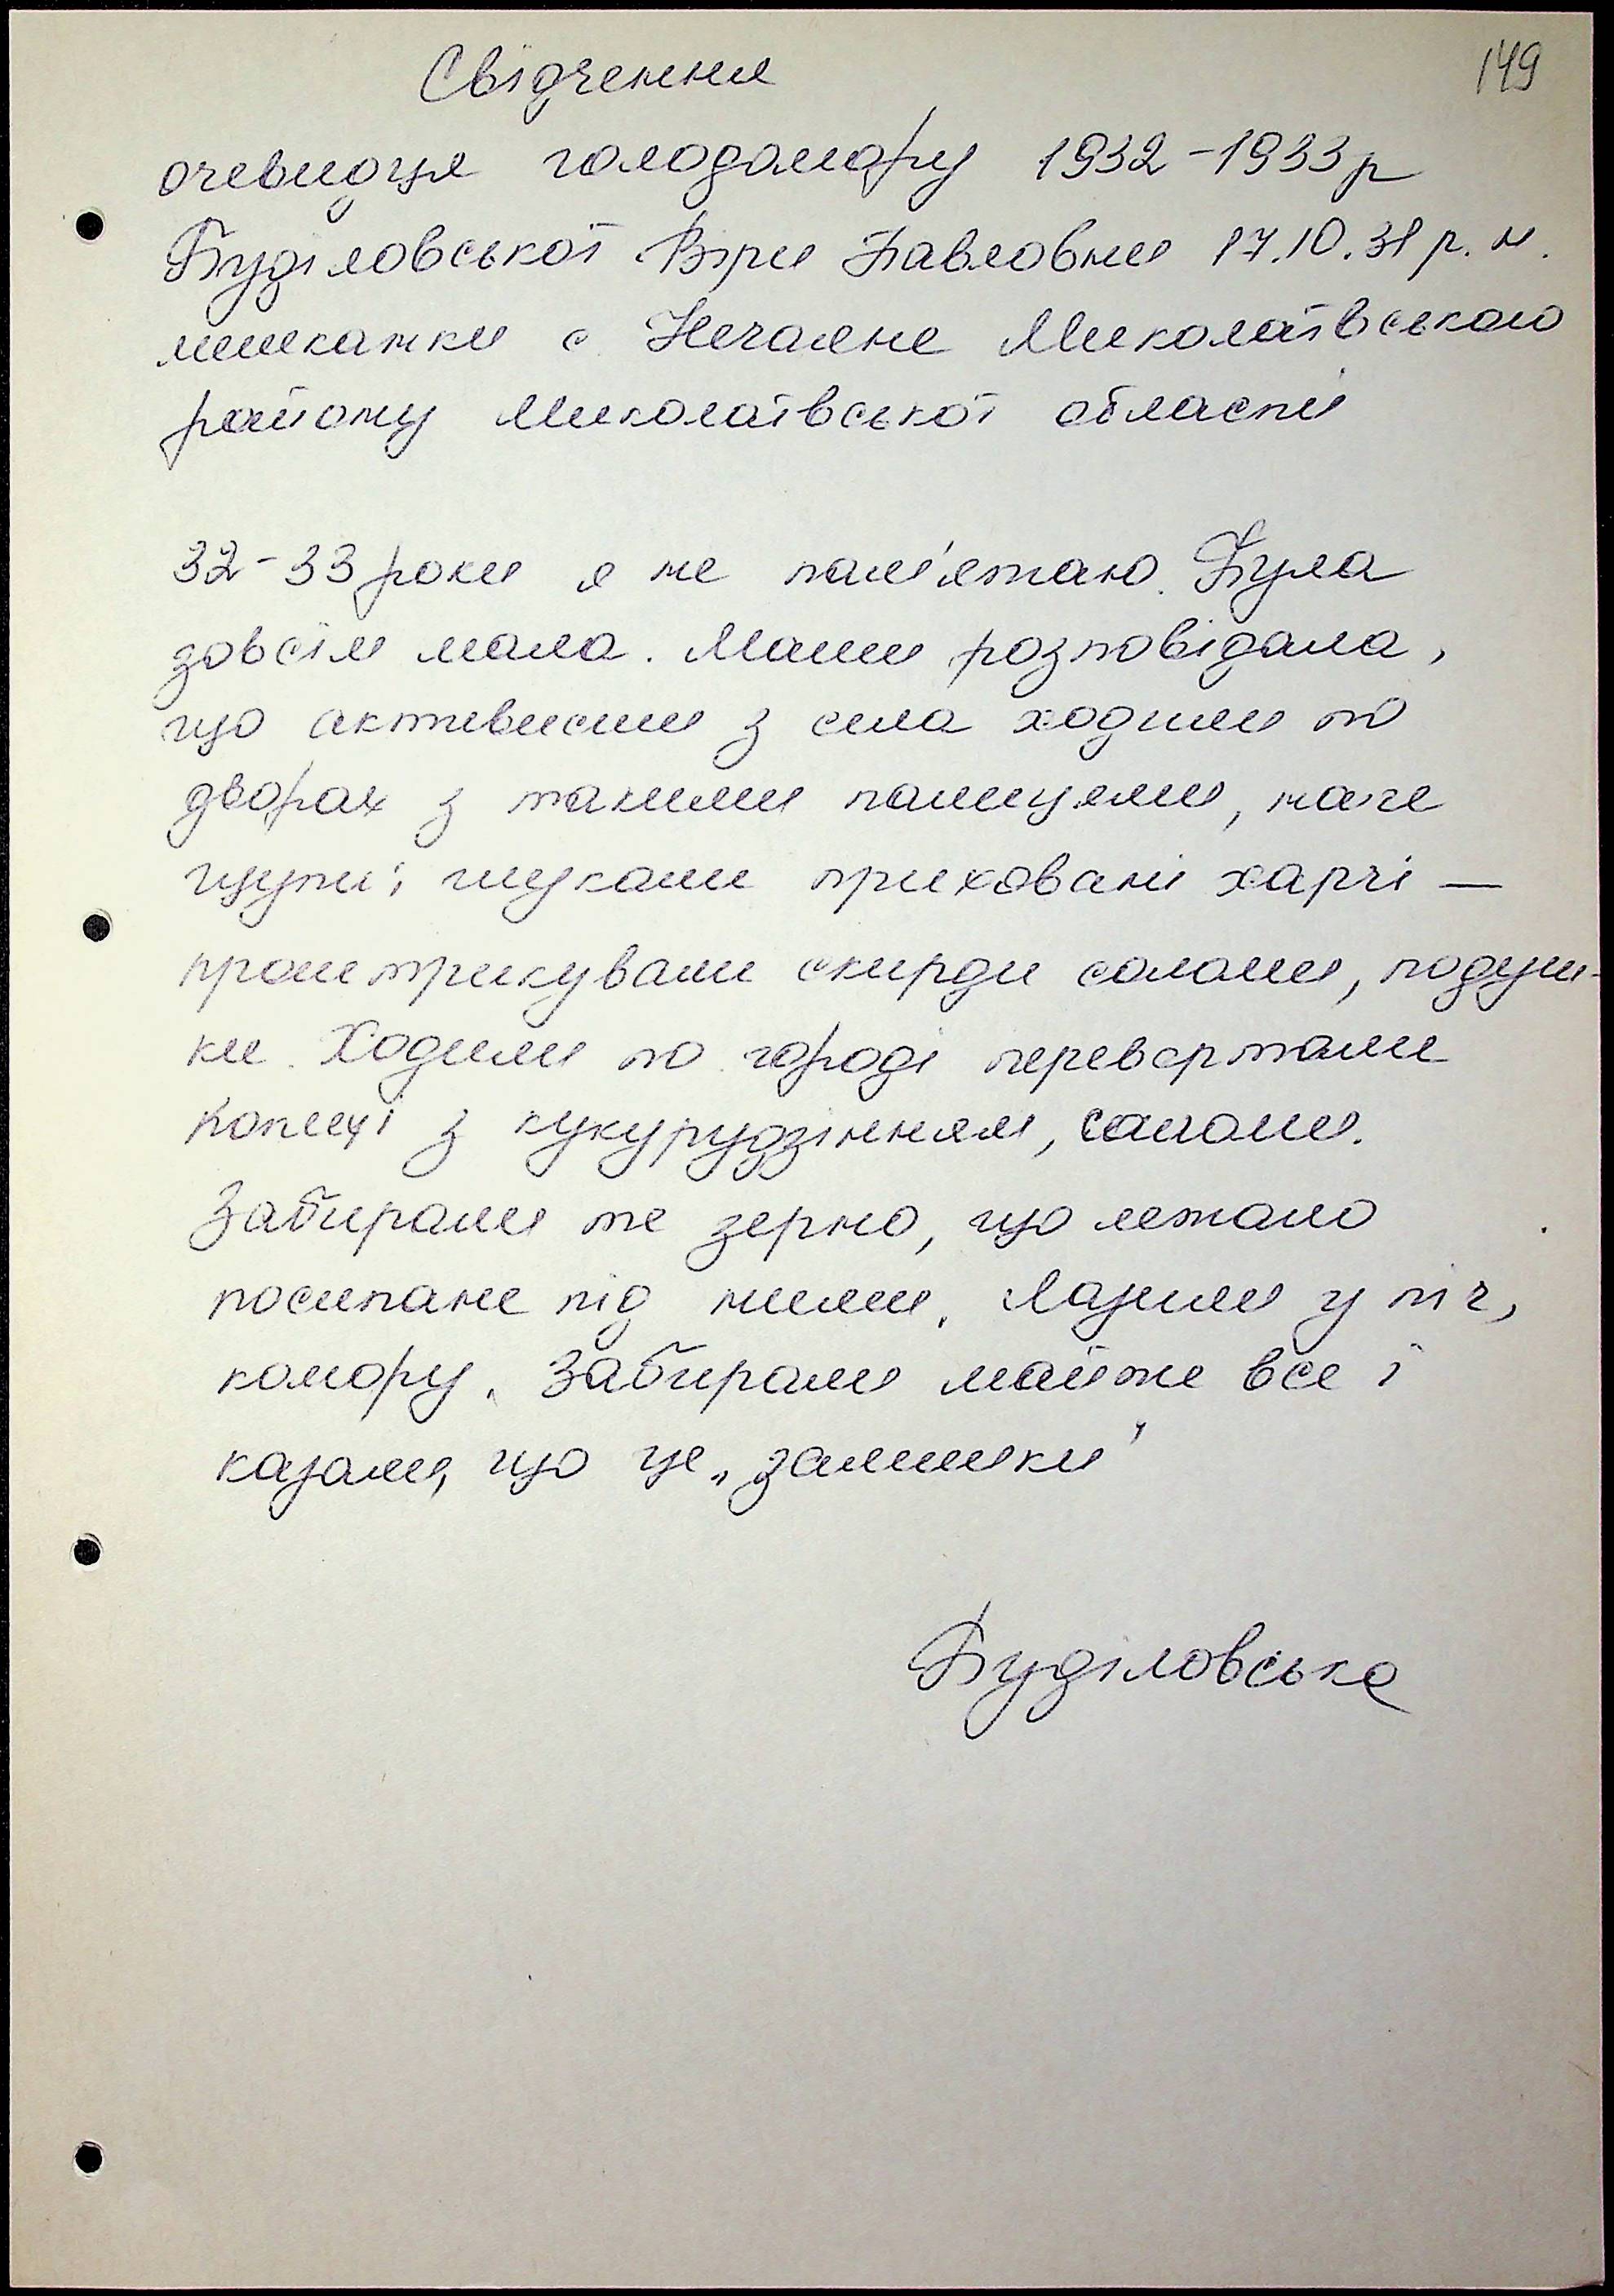 149
Свідчення
очевидця голодомору 1932-1933р
Буділовської Віри Павловни 17.10.31 р. н.
мешканки с. Нечаяне Миколаївського
району Миколаївської області
32-33 роки я не пам'ятаю. Була
зовсім мала. Мати розповідала,
що активисти з села ходили по
дворах з такими палицями, наче
щупи; шукали приховані харчі —
проштрикували скирди соломи, подуш-
ки. Ходили по городі перевертали
копиці з кукурудзінням, саломи.
Забирали те зерно, що лежало
посипане під ними. Лазили у піч,
комору. Забирали майже все і
казали, що це „залишки"
Буділовська